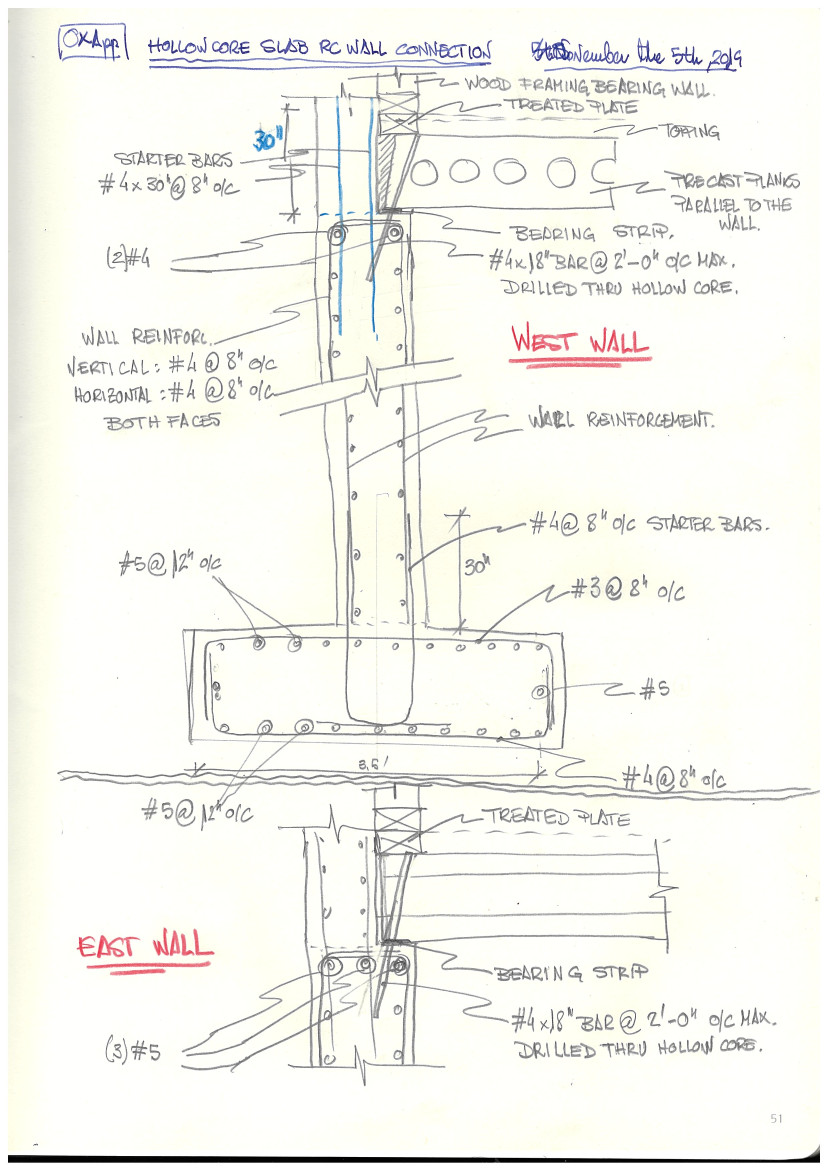 OXApp
HOLLOWCORE SLAB RC WALL CONNECTION
November the 5th, 2019
WOOD FRAMING BEARING WALL.
TREATED PLATE
30"
TOPPING
STARTER BARS
#4x30"@ 8" O/C
PRECAST PLANKS
PARALLEL TO THE
WALL.
BEARING STRIP.
(2)#4
#4x18" BAR @ 2'-0" O/C MAX.
DRILLED THRU HOLLOW CORE.
WALL REINFORC.
VERTICAL: #4 @ 8" O/C
HORIZONTAL: #4 @ 8" O/C
BOTH FACES
WEST WALL
WALL REINFORCEMENT.
#4@ 8" O/C STARTER BARS.
#5@12" O/C
30"
#3@ 8" O/C
#5
3,5'
#4@8" O/C
#5@12" O/C
TREATED PLATE
EAST WALL
BEARING STRIP
#4x18" BAR @ 2'-0" O/C MAX.
DRILLED THRU HOLLOW CORE.
(3)#5
51